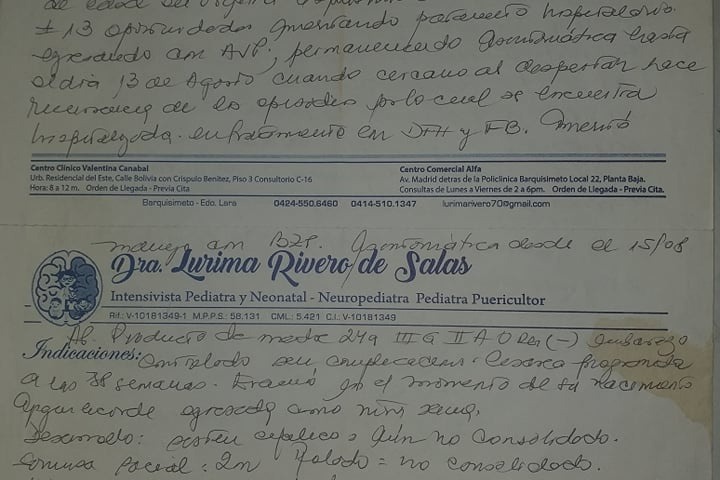 ± 13 oportunidades ameritando tratamiento hospitalario
egresando con AVP, permaneciendo asintomática hasta
el día 13 de Agosto cuando cercano al despertar hace
de los episodios por lo cual se encuentra
hospitalizada. en tratamiento en DFH y FB. Ameritó
Centro Clínico Valentina Canabal
Urb. Residencial del Este, Calle Bolivia con Crispulo Benitez, Piso 3 Consultorio C-16
Hora: 8 a 12 m. Orden de Llegada - Previa Cita
Centro Comercial Alfa
Av. Madrid detras de la Policlinica Barquisimeto Local 22, Planta Baja.
Consultas de Lunes a Viernes de 2 a 6pm. Orden de Llegada - Previa Cita.
Barquisimeto - Edo. Lara 0424-550.6460 0414-510.1347 lurimarivero70@gmail.com
manejo con BZP. Asintomática desde el 15/08
Dra. Lurima Rivero de Salas
Intensivista Pediatra y Neonatal - Neuropediatra Pediatra Puericultor
Rif.: V-10181349-1 M.P.P.S.: 58.131 CML.: 5.421 C.I.: V-10181349
Producto de madre 24a III G II A 0 (-) embarazo
Indicaciones:
controlado sin complicaciones. Cesárea programada
a las 38 semanas. en el momento de su nacimiento
Apgar acorde egresada como niña sana.
Desarrollo: sostén cefálico = aún no consolidado.
Sonrisa social: 2m Rolado = no consolidado.